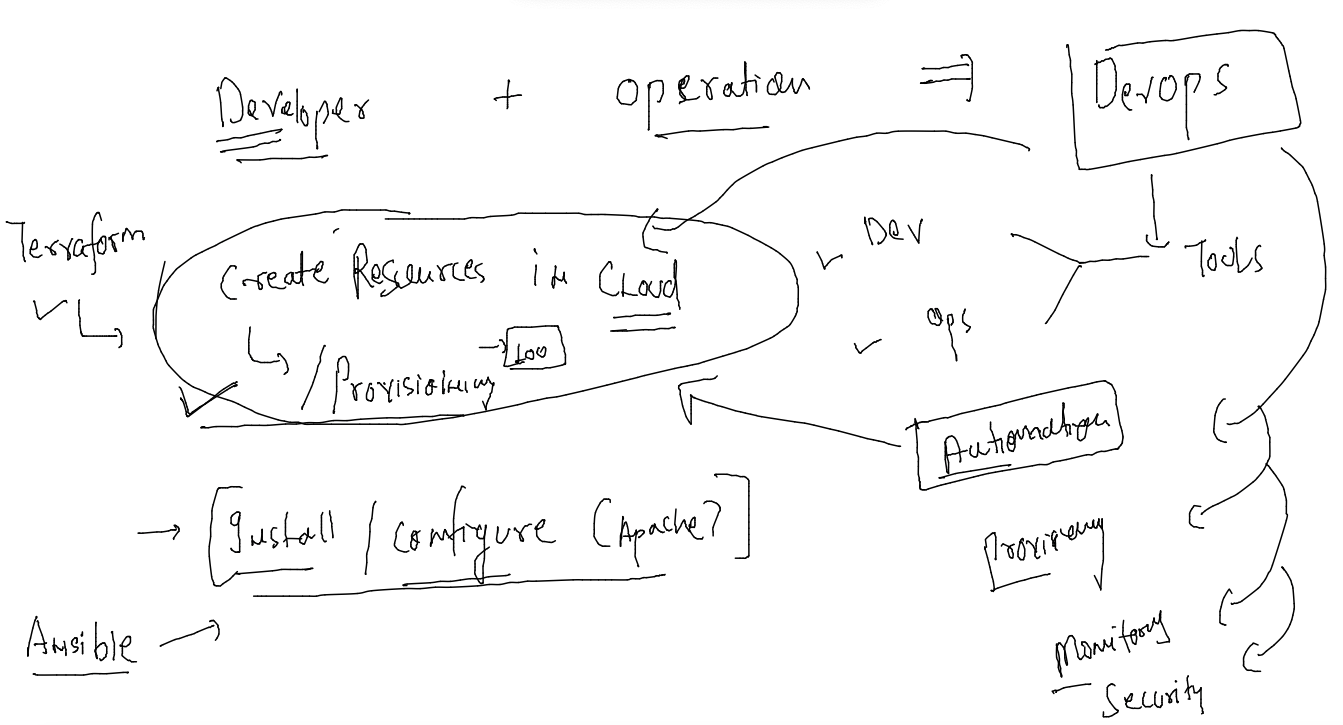 Developer + operation ⇒ Devops
Terraform
Create Resources in Cloud
/Provisioning → 100
✓ Dev
✓ Ops
Tools
Automation
→ [Install / configure (Apache)]
Ansible →
Monitoring
Security